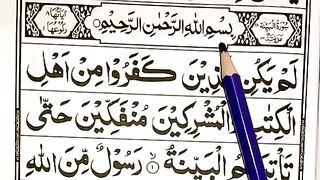 سورة البينة
بِسْمِ اللهِ الرَّحْمٰنِ الرَّحِيْمِ
لَمْ يَكُنِ الَّذِيْنَ كَفَرُوْا مِنْ اَهْلِ
الْكِتٰبِ وَالْمُشْرِكِيْنَ مُنْفَكِّيْنَ حَتّٰى
تَاْتِيَهُمُ الْبَيِّنَةُ ۙ ١ رَسُوْلٌ مِّنَ اللهِ